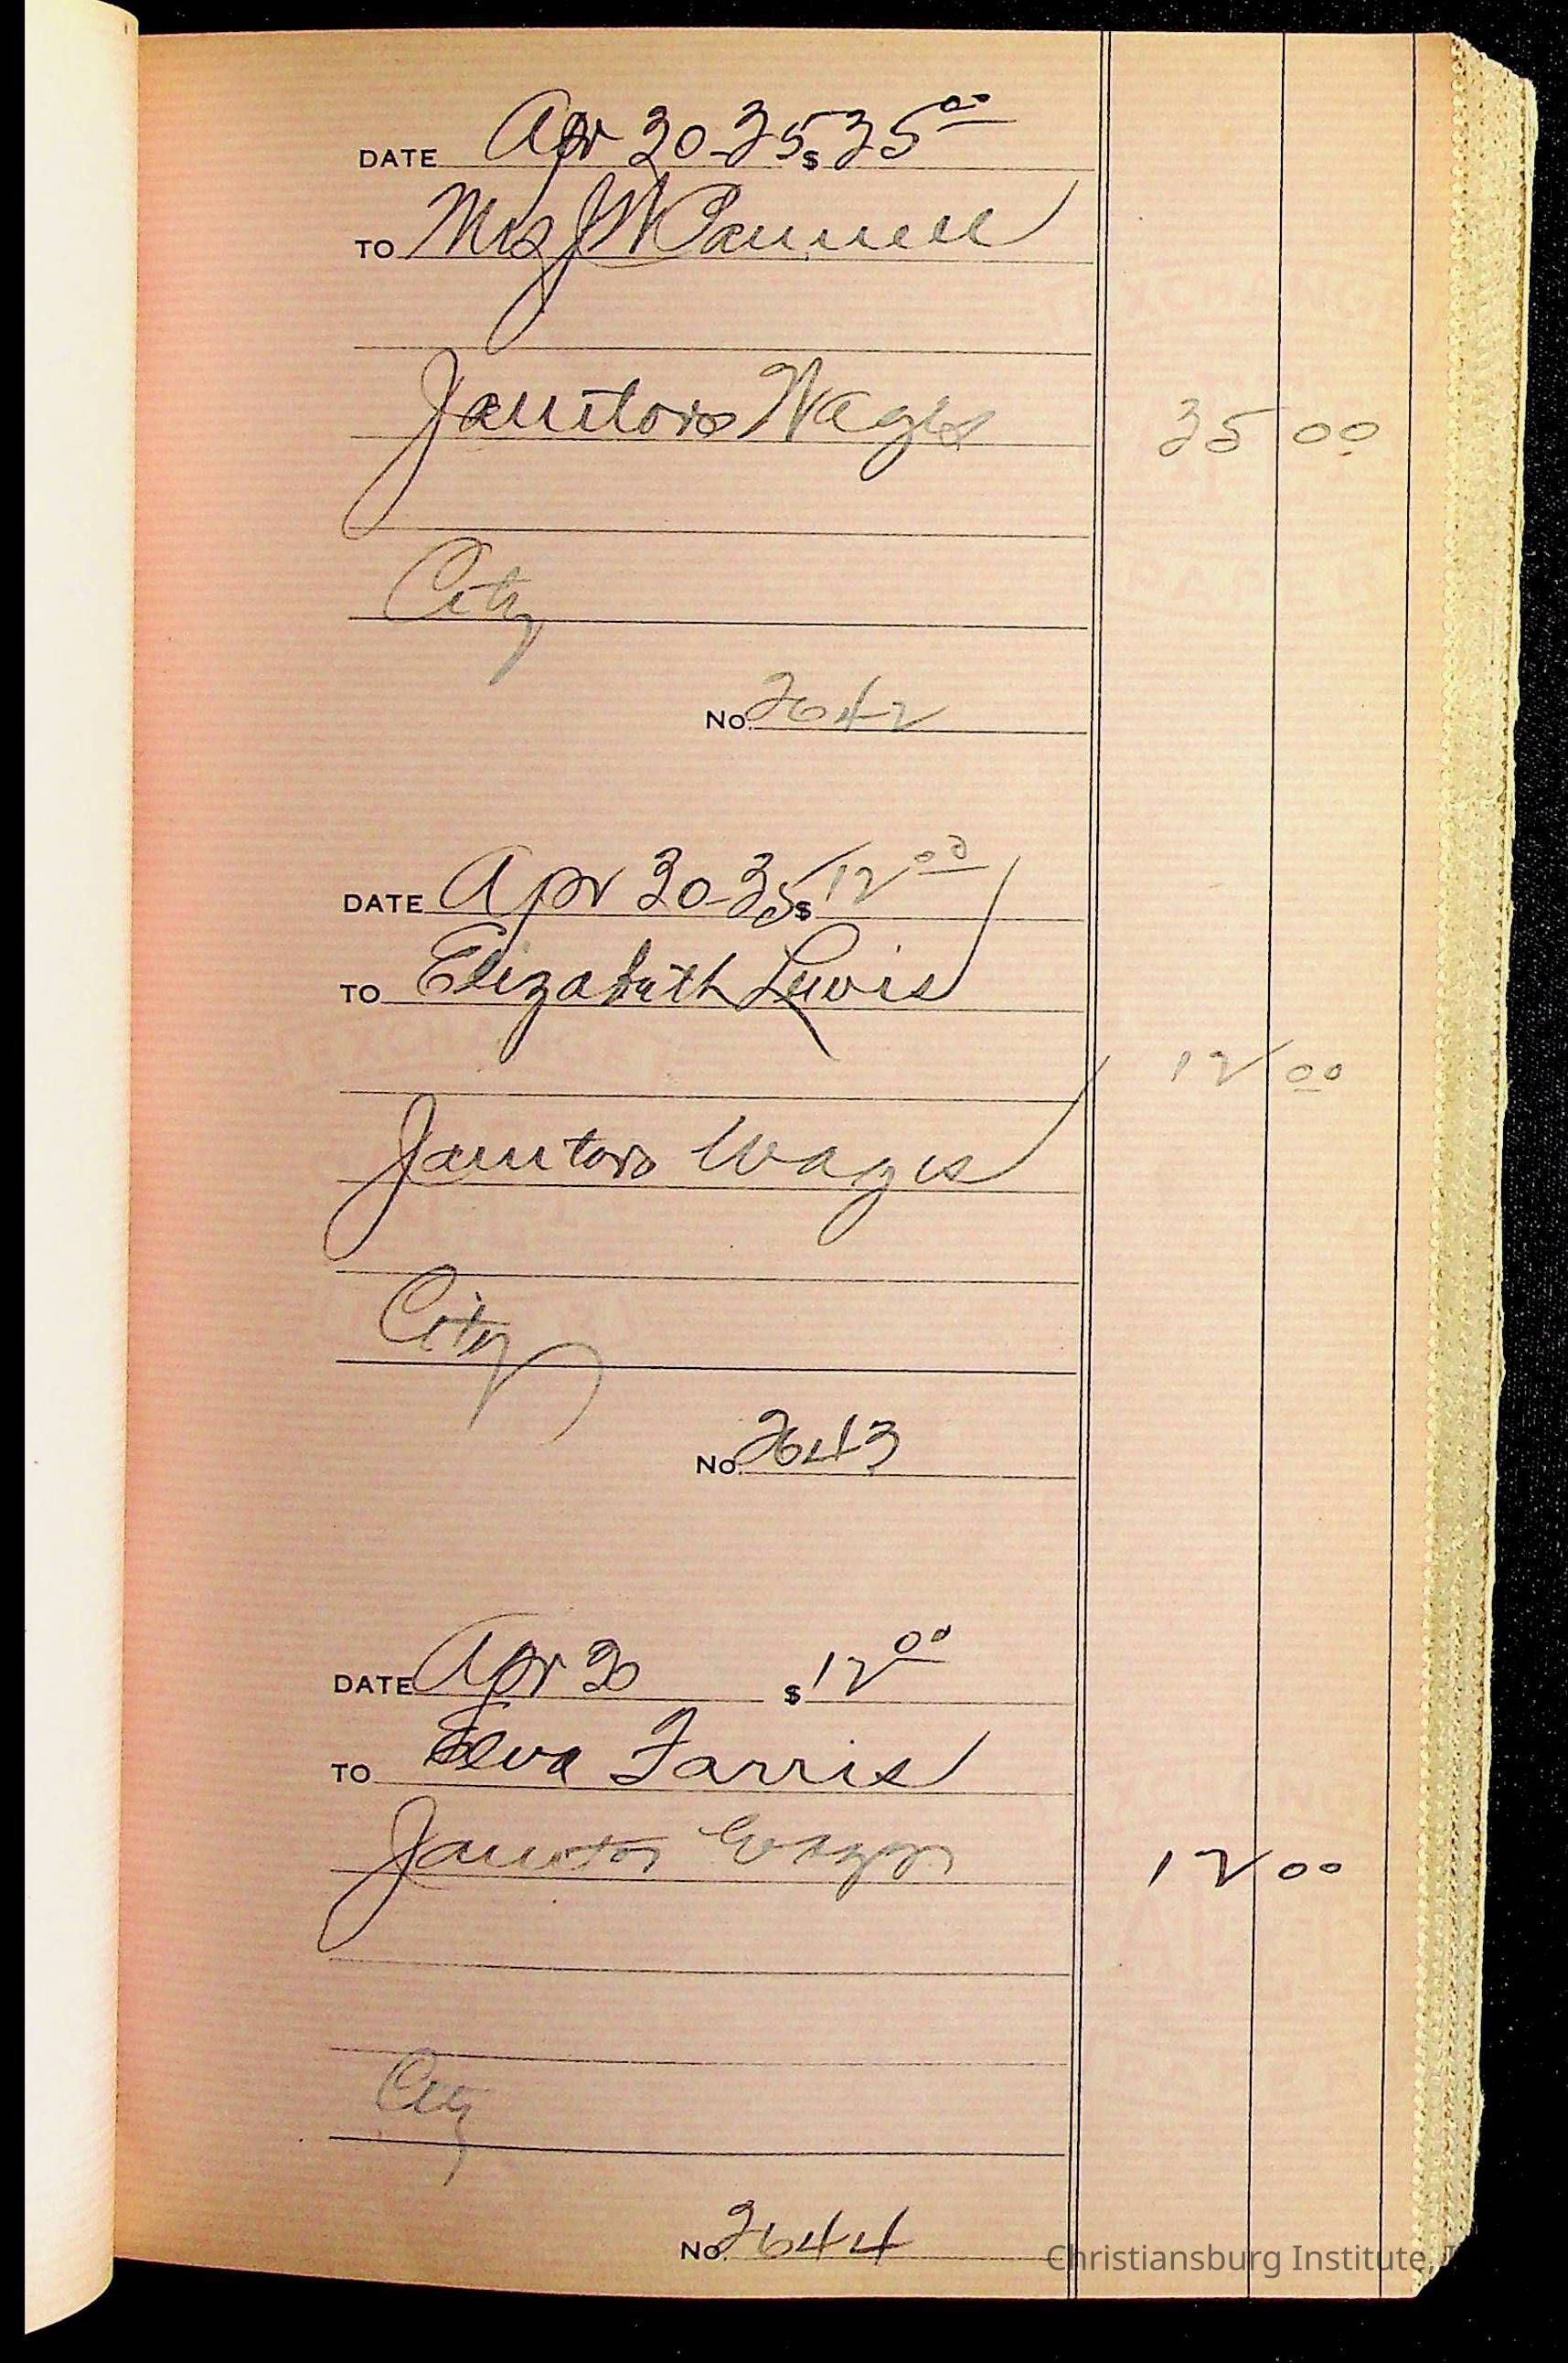 DATE Apr 30-35 $ 35 00
TO Mrs J W Pannell
Janitors Wages 35 00
City
No. 2642
DATE Apr 30-35 $ 12 00
TO Elizabeth Lewis
12 00
Janitors Wages
City
No. 2643
DATE Apr 30 $ 12 00
TO Elva Farris
Janitor Wages 12 00
City
No. 2644
Christiansburg Institute,